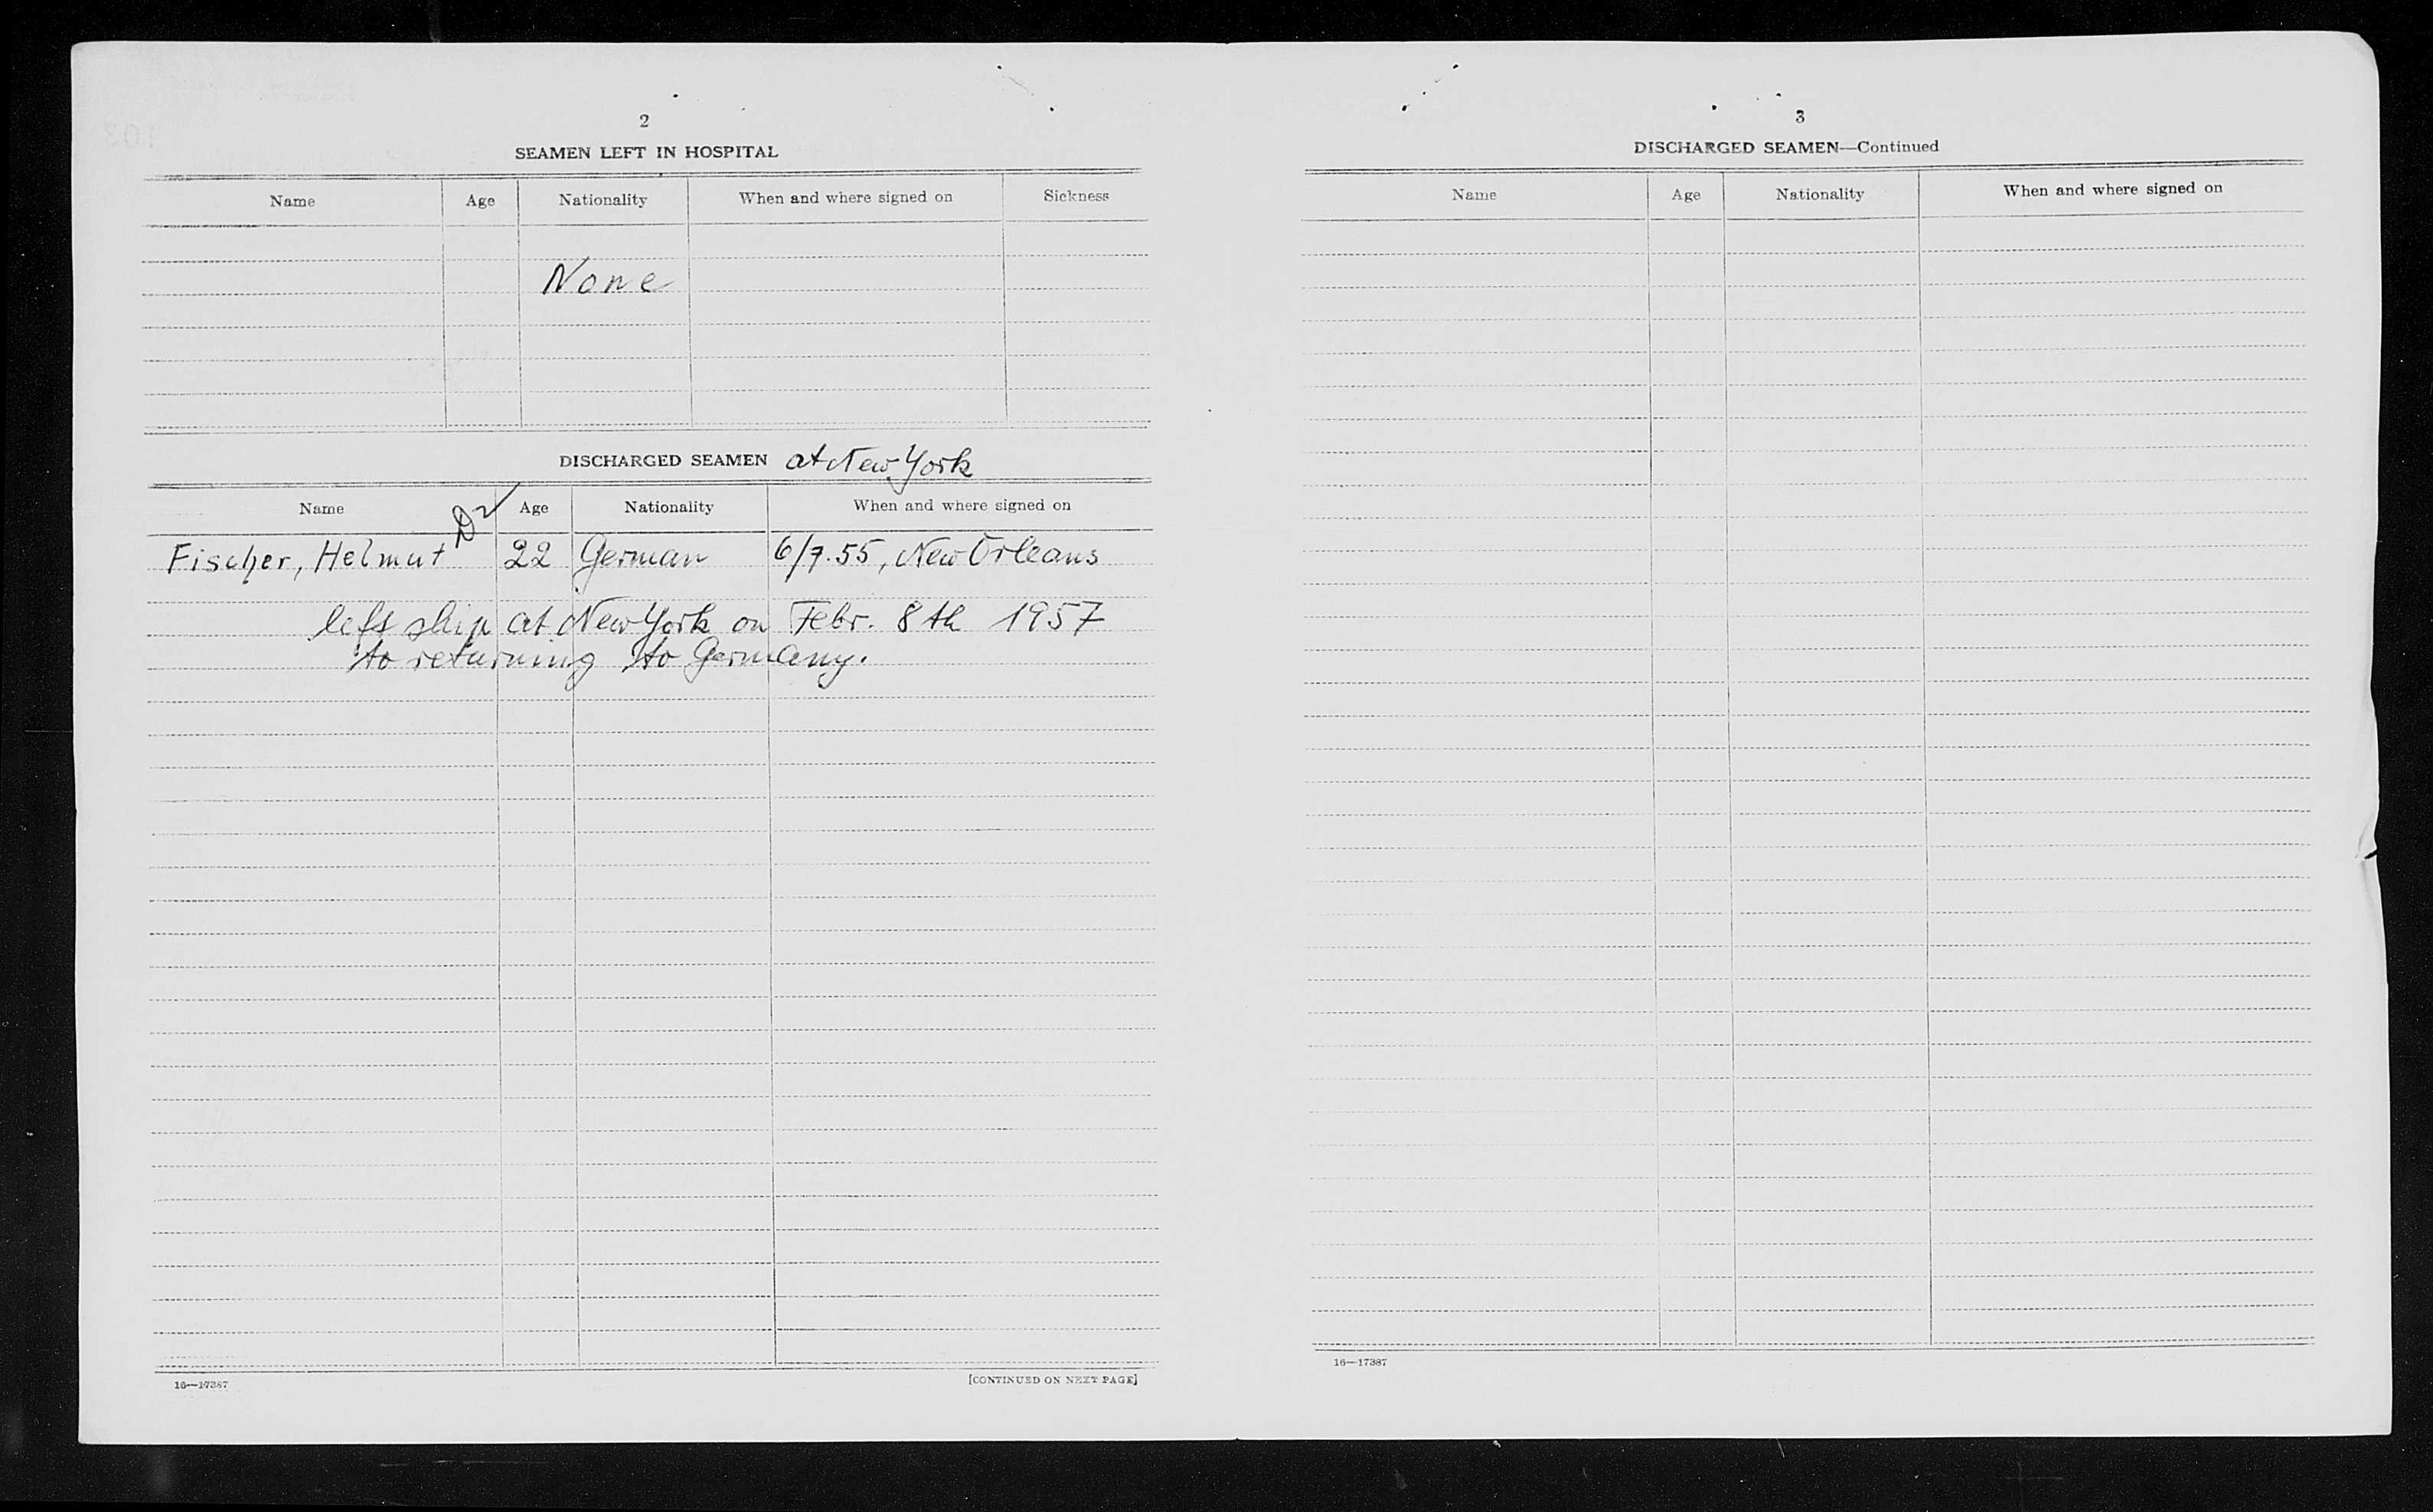 2
SEAMEN LEFT IN HOSPITAL
Name Age Nationality When and where signed on Sickness
None
DISCHARGED SEAMEN at New York
Name Age Nationality When and where signed on
Fischer, Helmut 22 German 6/7.55, New Orleans
left ship at New York on Febr. 8th 1957
to returning to Germany.
16—17387 [CONTINUED ON NEXT PAGE]
3
DISCHARGED SEAMEN—Continued
Name Age Nationality When and where signed on
16—17387